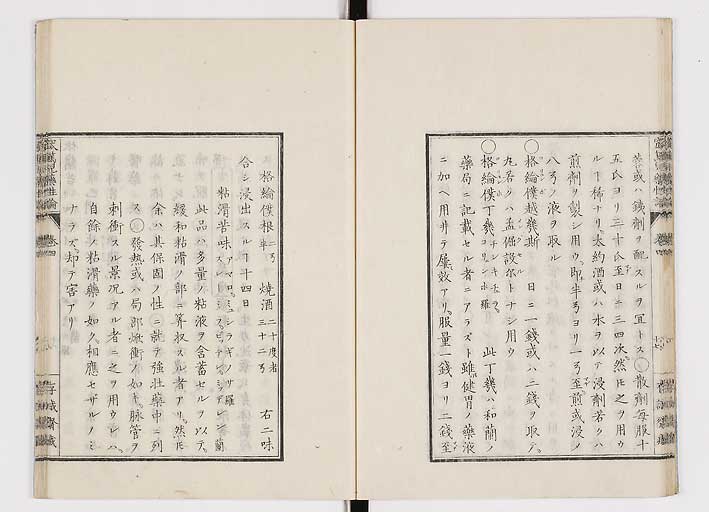 芳或ハ鋑劑ヲ配スルヲ冝トス〇散劑毎服十
五氏ヨリ三十氏至日ニ三四次然𪜈之ヲ用ウ
ルヿ稀ナリ太約酒或ハ水ヲ以テ浸劑若クハ
煎劑ヲ製シ用ウ即半弓ヨリ一弓至煎或浸ノ
八弓ノ液ヲ取ル
〇格綸僕越幾斯 日ニ一錢或ハ二錢ヲ取テ
丸若クハ孟倔設尓トナシ用ウ
〇格綸僕丁幾 此丁幾ハ和蘭ノ
藥局ニ記載セル者ニアラズト雖健胃ノ藥液
ニ加ヘ用井テ屢效アリ服量一錢ヨリ二錢至
格綸僕根 燒酒 二十度者 三十二弓 右二味
合シ浸出スルヿ十四日
粘滑苦味
此品ハ多量ノ粘液ヲ含蓄セルヲ以テ
緩和粘滑ノ部ニ算収スル者アリ然𪜈
余ハ其保固ノ性ニ就テ強壯藥中ニ列
ス〇發熱或ハ局部焮衝ノ如キ脈管ヲ
刺衝スル景況アル者ニ之ヲ用ウレハ
自餘ノ粘滑藥ノ如ク相應セザルノミ
ナラズ却テ害アリ
卷四